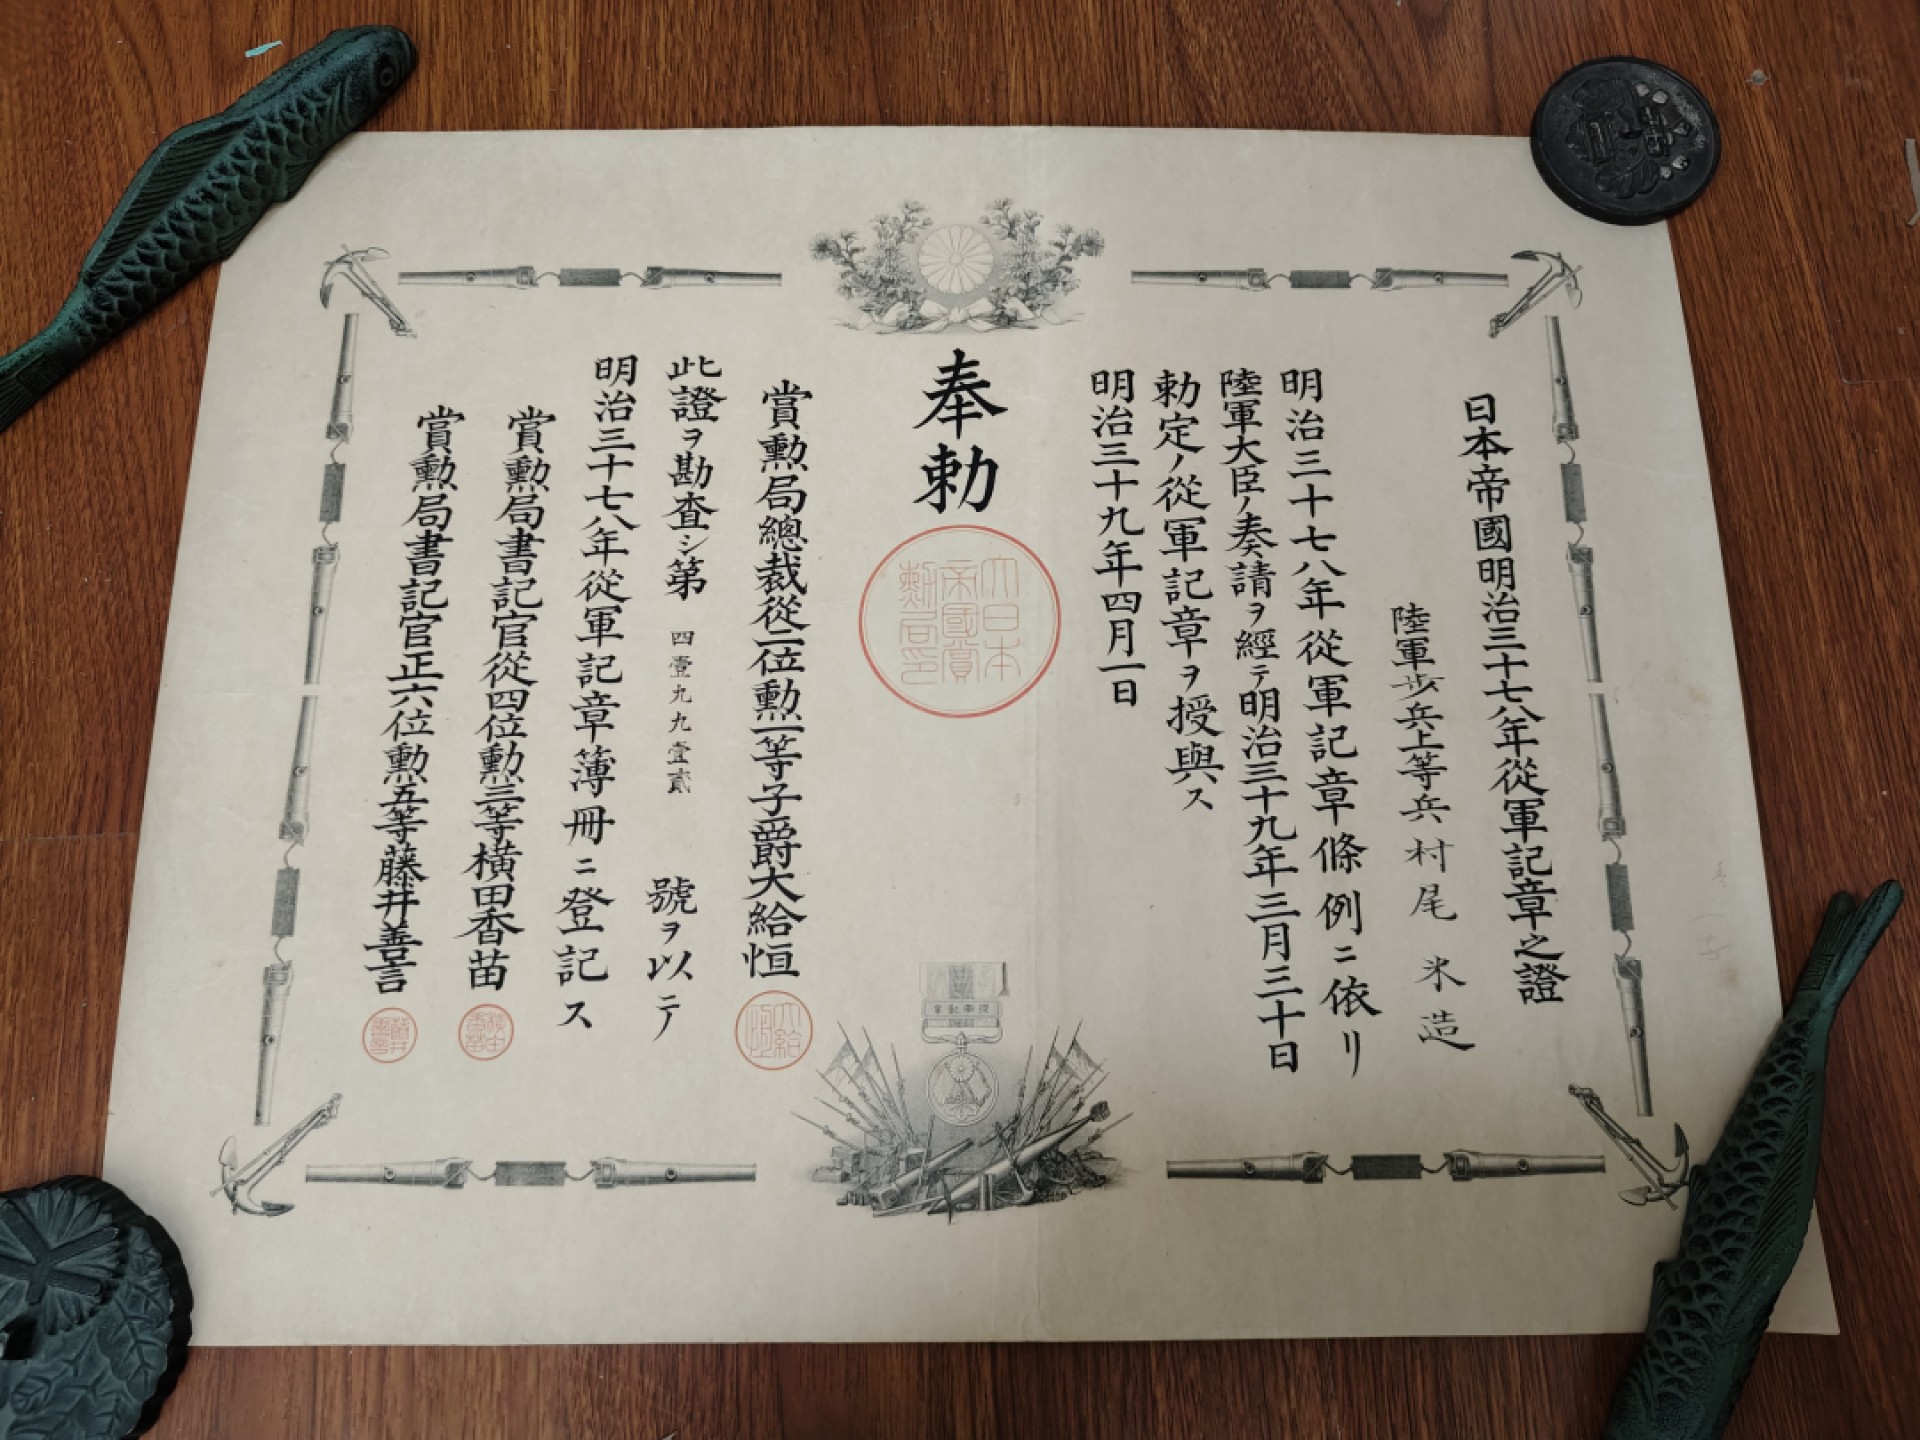 日本帝國明治三十七八年從軍記章之證
陸軍歩兵上等兵 村尾米造
明治三十七八年從軍記章條例ニ依リ
陸軍大臣ノ奏請ヲ經テ明治三十九年三月三十日
勅定ノ從軍記章ヲ授與ス
明治三十九年四月一日
奉勅
大日本帝國賞勳局印
賞勳局總裁從二位勳一等子爵大給恒
大給恒
此證ヲ勘査シ第四壹九九壹貳號ヲ以テ
明治三十七八年從軍記章簿冊ニ登記ス
賞勳局書記官從四位勳三等横田香苗
横田香苗
賞勳局書記官正六位勳五等藤井善言
藤井善言
章記軍從